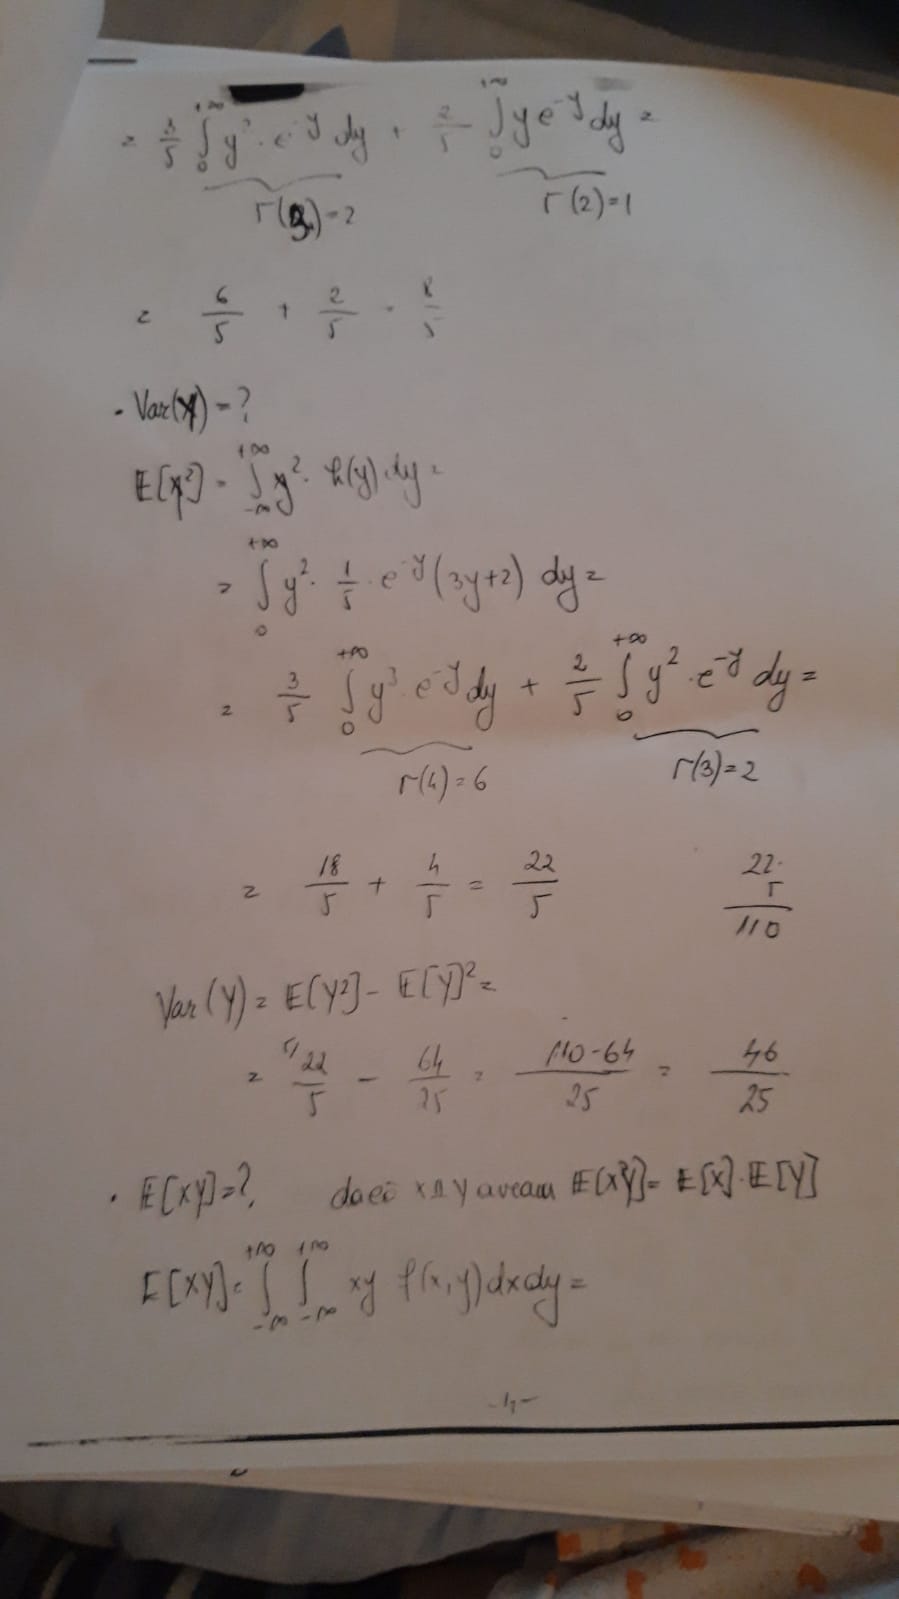 = 3/5 ∫_0^{+∞} y² · e^{-y} dy + 2/5 ∫_0^{+∞} y e^{-y} dy =
Γ(3)=2 Γ(2)=1
= 6/5 + 2/5 = 8/5
• Var(Y) = ?
E[Y²] = ∫_{-∞}^{+∞} y² · h(y) dy =
= ∫_0^{+∞} y² · 1/5 · e^{-y} (3y+2) dy =
= 3/5 ∫_0^{+∞} y³ · e^{-y} dy + 2/5 ∫_0^{+∞} y² · e^{-y} dy =
Γ(4) = 6 Γ(3)=2
= 18/5 + 4/5 = 22/5
22·
5
110
Var(Y) = E[Y²] - E[Y]² =
= 5/ 22/5 - 64/25 = 110-64/25 = 46/25
• E[XY]=? dacă X⫫Y aveam E[XY] = E[X]·E[Y]
E[XY] = ∫_{-∞}^{+∞} ∫_{-∞}^{+∞} xy f(x,y) dx dy =
-4-